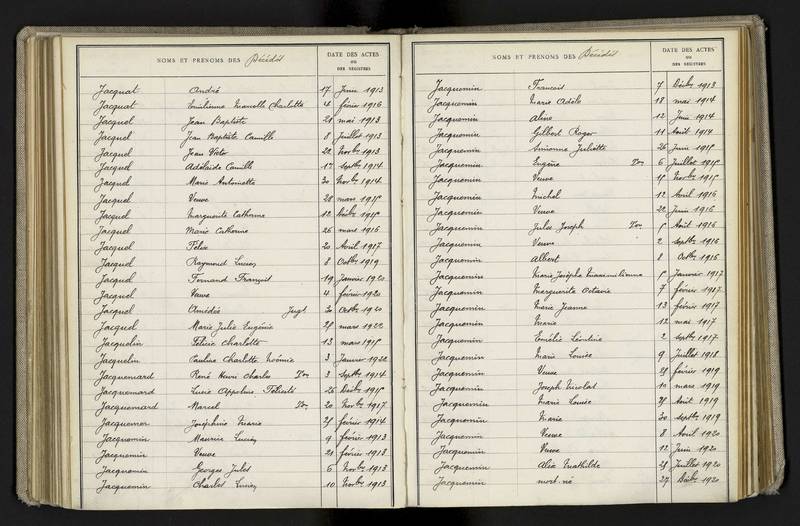 NOMS ET PRENOMS DES Décédés
DATE DES ACTES
OU
DES REGISTRES
Jacquat André 17 Juin 1913
Jacquat Emilienne Marcelle Charlotte 4 février 1916
Jacquel Jean Baptiste 21 mai 1913
Jacquel Jean Baptiste Camille 8 Juillet 1913
Jacquel Jean Victor 22 Novbre 1913
Jacquel Adélaïde Camille 17 Septbre 1914
Jacquel Marie Antoinette 30 Novbre 1914
Jacquel Veuve 28 mars 1915
Jacquel Marguerite Catherine 12 Décbre 1915
Jacquel Marie Catherine 26 mars 1916
Jacquel Félix 20 Avril 1917
Jacquel Raymond Lucien 8 Octbre 1919
Jacquel Fernand François 19 Janvier 1920
Jacquel Veuve 4 février 1920
Jacquel Amédée Jugt 30 Octbre 1920
Jacquel Marie Julie Eugénie 25 mars 1922
Jacquelin Félicie Charlotte 13 mars 1915
Jacquelin Pauline Charlotte Noémie 3 Janvier 1922
Jacquemard René Henri Charles Ton 3 Septbre 1914
Jacquemard Lucie Appoline Félicité 26 Décbre 1915
Jacquemard Marcel Ton 20 Novbre 1917
Jacquemer Joséphine Marie 25 février 1914
Jacquemin Maurice Lucien 9 février 1913
Jacquemin Veuve 21 février 1913
Jacquemin Georges Jules 6 Novbre 1913
Jacquemin Charles Lucien 10 Novbre 1913
NOMS ET PRENOMS DES Décédés
DATE DES ACTES
OU
DES REGISTRES
Jacquemin François 7 Décbre 1913
Jacquemin Marie Adèle 18 mai 1914
Jacquemin Aline 12 Juin 1914
Jacquemin Gilbert Roger 11 Août 1914
Jacquemin Simonne Juliette 26 Juin 1915
Jacquemin Eugène Ton 6 Juillet 1915
Jacquemin Veuve 15 Novbre 1915
Jacquemin Michel 12 Avril 1916
Jacquemin Veuve 22 Juin 1916
Jacquemin Jules Joseph Ton 5 Août 1916
Jacquemin Veuve 2 Septbre 1916
Jacquemin Albert 8 Octbre 1916
Jacquemin Marie Josèphe Maximilienne 5 Janvier 1917
Jacquemin Marguerite Octavie 7 février 1917
Jacquemin Marie Jeanne 13 février 1917
Jacquemin Marie 12 mai 1917
Jacquemin Emélie Léontine 2 Septbre 1917
Jacquemin Marie Louise 9 Juillet 1918
Jacquemin Veuve 25 février 1919
Jacquemin Joseph Nicolas 10 mars 1919
Jacquemin Marie Louise 25 Août 1919
Jacquemin Marie 30 Septbre 1919
Jacquemin Veuve 8 Avril 1920
Jacquemin Veuve 12 Juin 1920
Jacquemin Alix Mathilde 25 Juillet 1920
Jacquemin mort-né 27 Décbre 1920